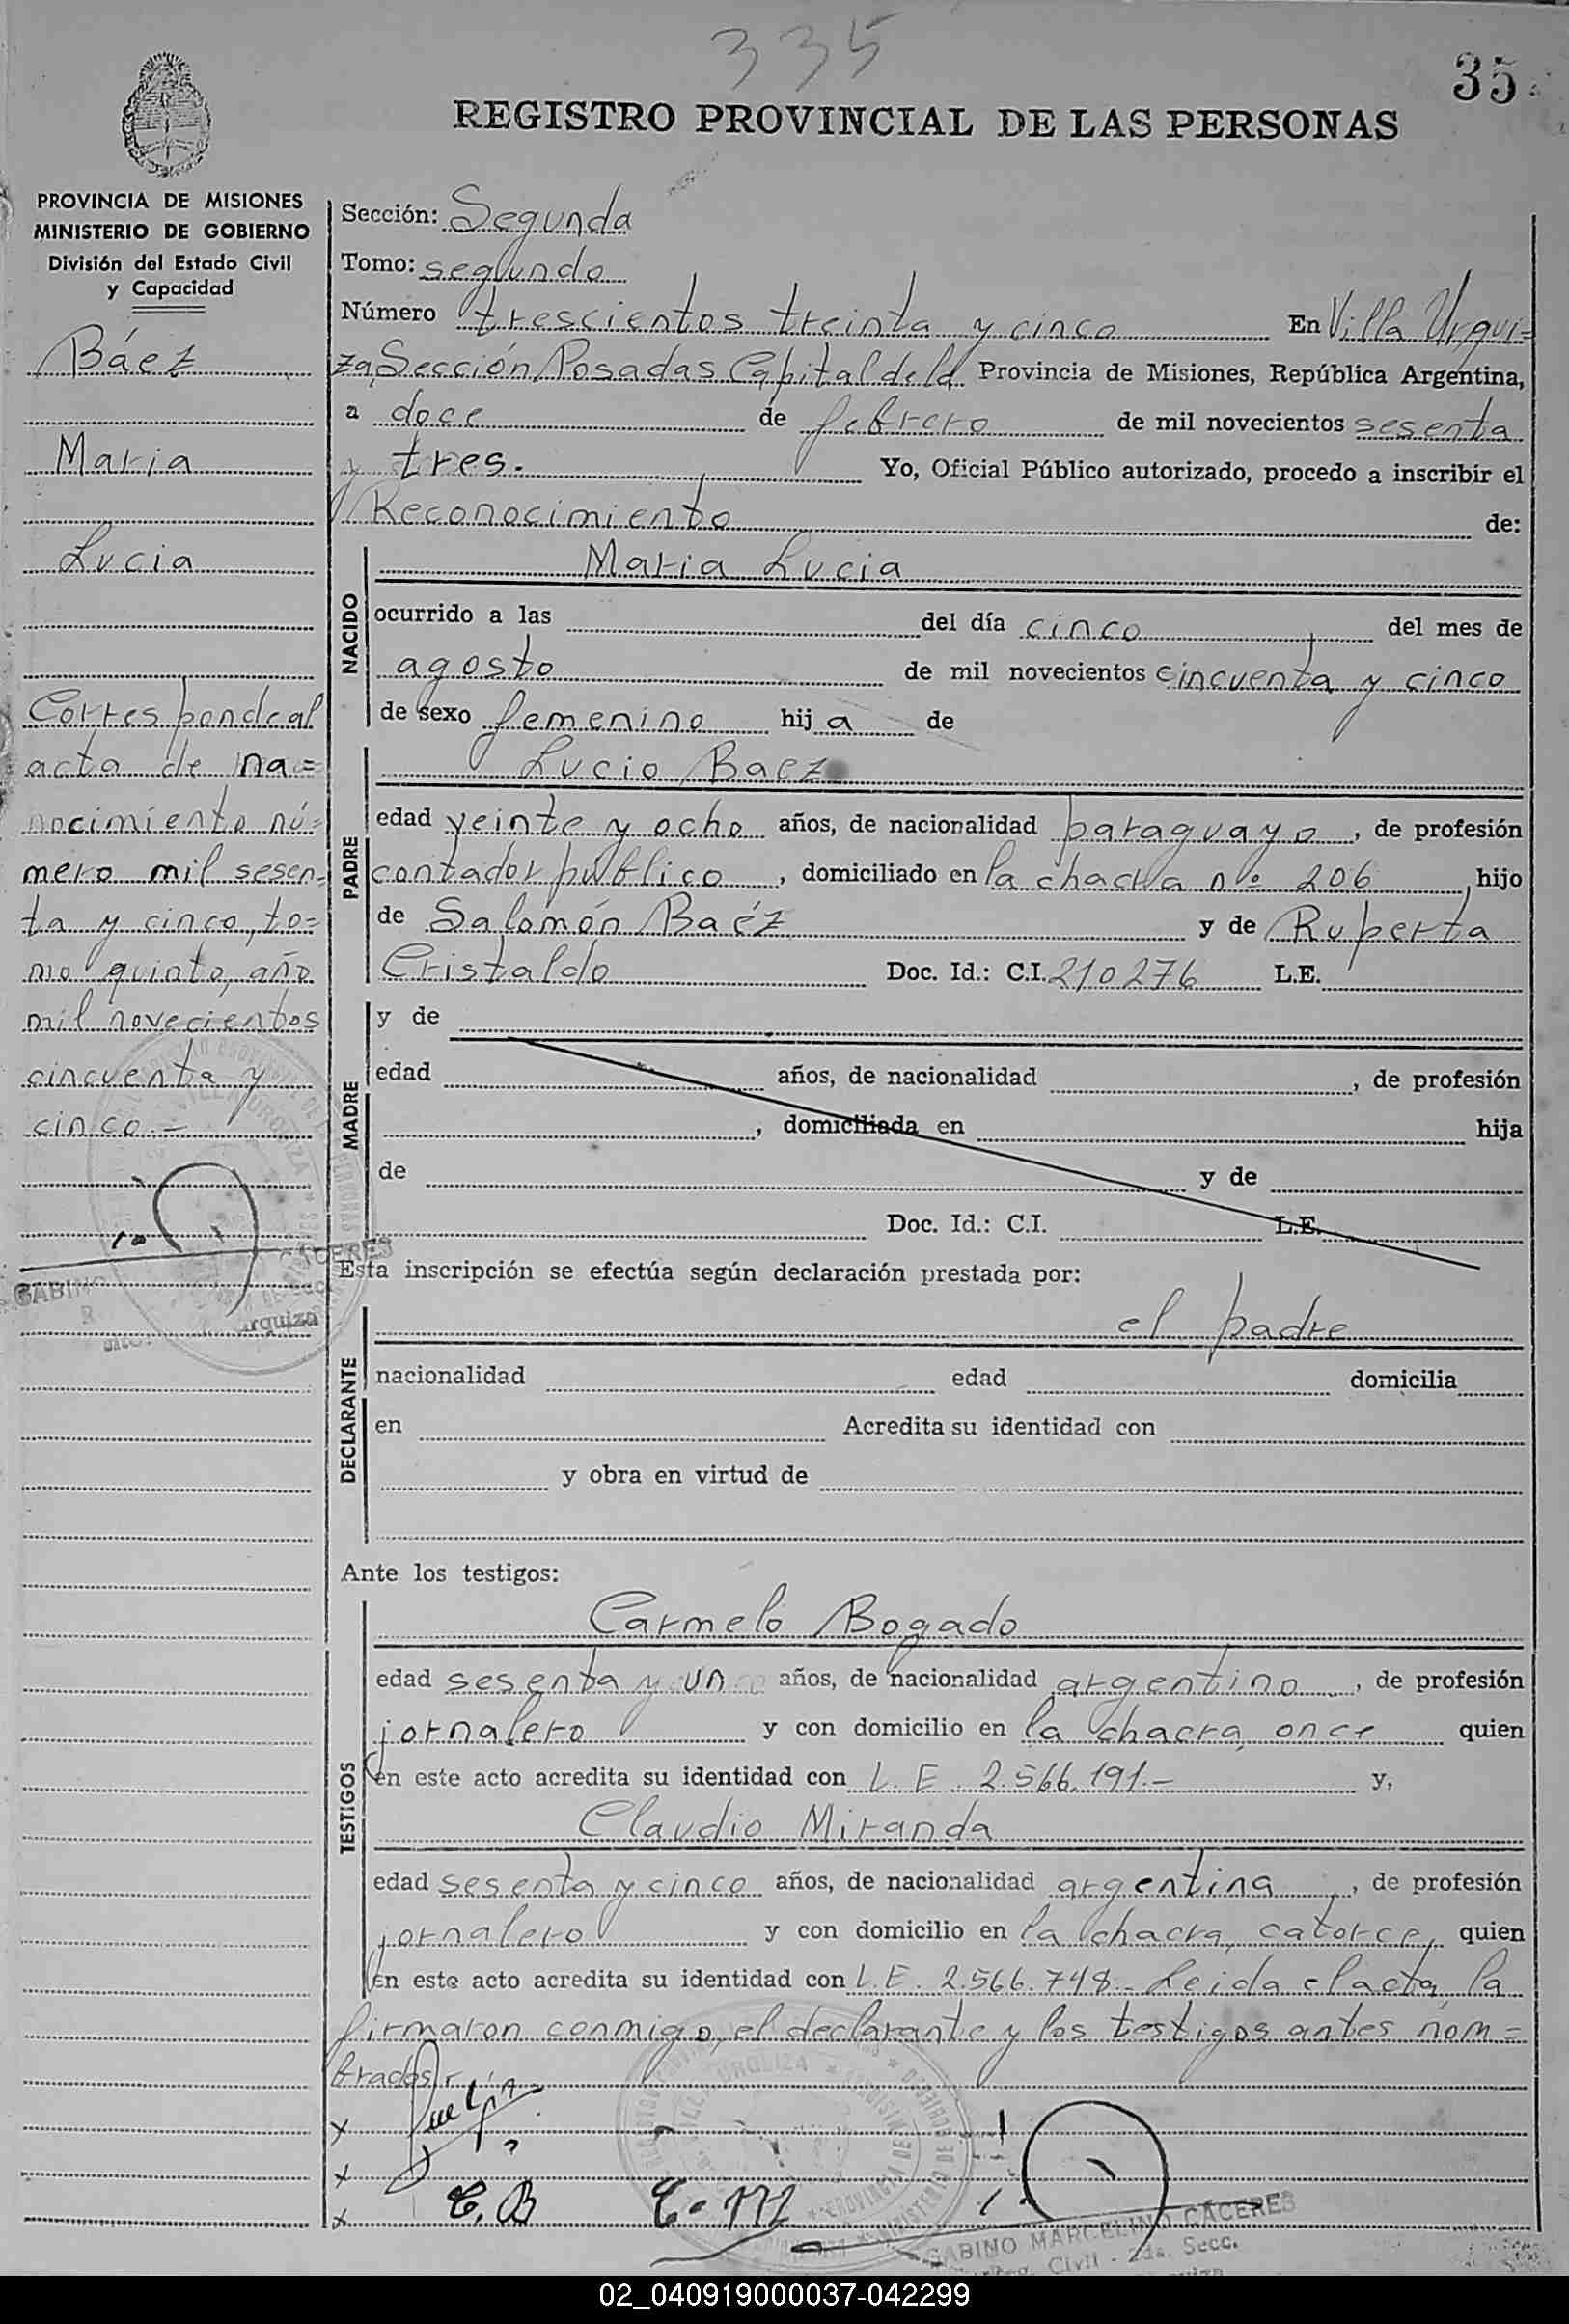 335
35
REGISTRO PROVINCIAL DE LAS PERSONAS
PROVINCIA DE MISIONES
MINISTERIO DE GOBIERNO
División del Estado Civil
y Capacidad
Báez
Maria
Lucia
Corresponde al
acta de na=
nocimiento nú=
mero mil sesen=
ta y cinco, to=
mo quinto, año
mil novecientos
cincuenta y
cinco.-
Sección: Segunda
Tomo: segundo
Número trescientos treinta y cinco En Villa Urqui=
za, Sección Posadas Capital de la Provincia de Misiones, República Argentina,
a doce de febrero de mil novecientos sesenta
y tres. Yo, Oficial Público autorizado, procedo a inscribir el
Reconocimiento de:
NACIDO
Maria Lucia
ocurrido a las del día cinco del mes de
agosto de mil novecientos cincuenta y cinco
de sexo femenino hija de
PADRE
Lucio Baez
edad veinte y ocho años, de nacionalidad paraguayo, de profesión
contador público, domiciliado en la chacra nº 206, hijo
de Salomón Baéz y de Ruperta
Cristaldo Doc. Id.: C.I. 210276 L.E.
MADRE
y de
edad años, de nacionalidad , de profesión
, domiciliada en hija
de y de
Doc. Id.: C.I. L.E.
Esta inscripción se efectúa según declaración prestada por:
DECLARANTE
el padre
nacionalidad edad domicilia
en Acredita su identidad con
y obra en virtud de
Ante los testigos:
TESTIGOS
Carmelo Bogado
edad sesenta y un años, de nacionalidad argentino, de profesión
jornalero y con domicilio en la chacra once quien
en este acto acredita su identidad con L. E. 2.566.191.- y,
Claudio Miranda
edad sesenta y cinco años, de nacionalidad argentina, de profesión
jornalero y con domicilio en la chacra, catorce, quien
en este acto acredita su identidad con L.E. 2.566.748.- Leida el acta, la
firmaron conmigo, el declarante y los testigos antes nom=
brados
x
x
x C. B C. M
GABINO MARCELINO CACERES
Civil - 2da. Secc.
02_040919000037-042299